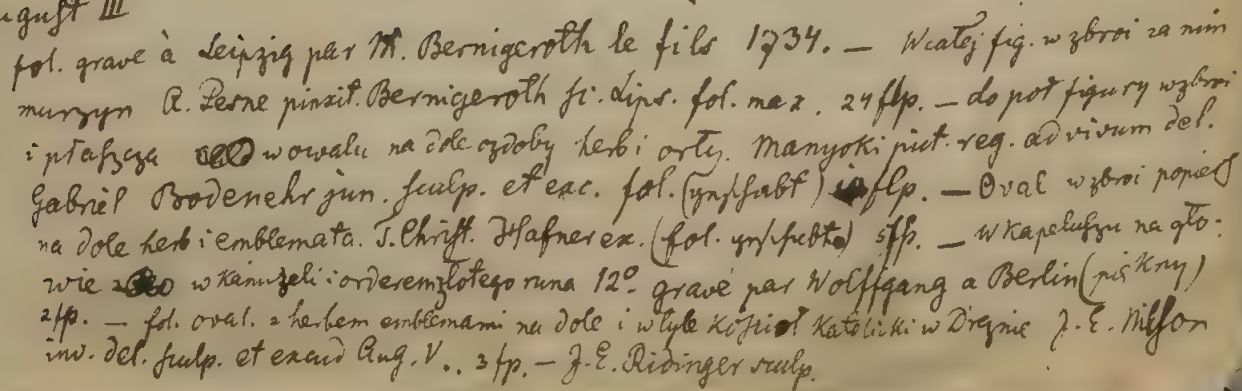 ugust III
fol. gravé à Leipzig par M. Bernigeroth le fils 1734. — W całej fig. w zbroi za nim
murzyn A. Pesne pinxit. Bernigeroth sc. Lips. fol. max. 24 flp. — do poł figury w zbroi
i płaszcza w owalu na dole ozdoby herb i orły. Manyoki pict. reg. ad vivum del.
Gabriel Bodenehr jun. sculp. et exc. fol. (gnschabt) flp. — Oval w zbroi popiers
na dole herb i emblemata. J. Christ. Hafner ex. (fol. gnschabt) 5 fp. — w kapeluszu na gło-
wie w kamizeli i orderem złotego runa 12º gravé par Wolffgang a Berlin (piękny)
2 fp. — fol. oval. z herbem emblemami na dole i w tyle Kościoł Katolicki w Dreznie J. E. Nilson
inv. del. sculp. et excud Aug. V.. 3 fp. — J. E. Ridinger sculp.